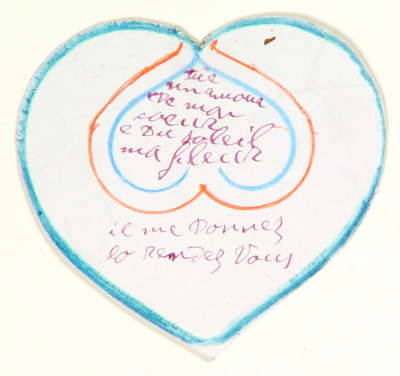 tue
un amour
de mon
coeur
e Du soleil
ma fleur
il me Donnez
lo rendez Vous